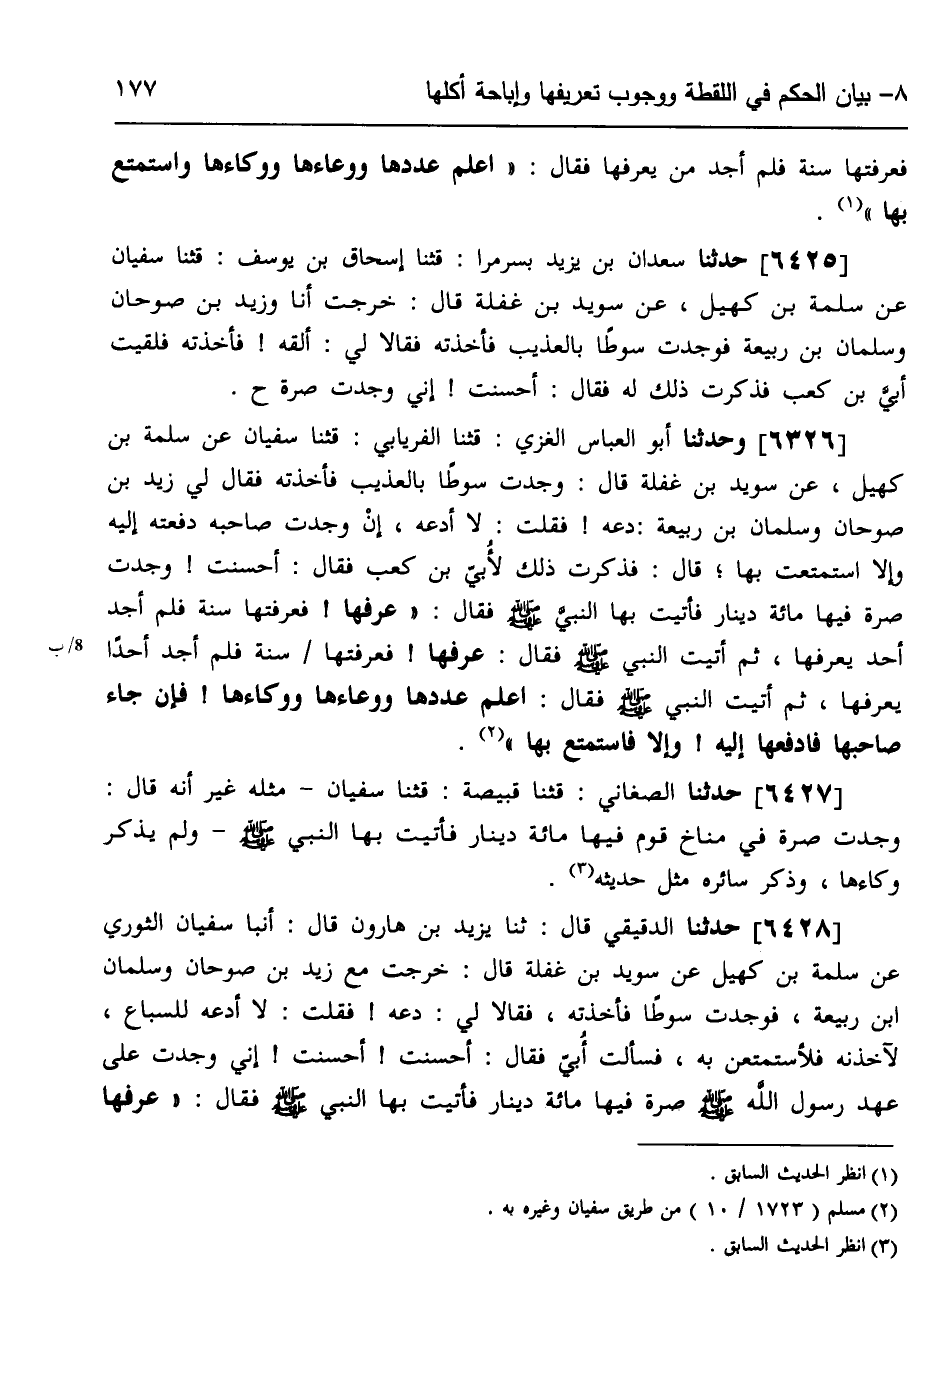 ٨- بيان الحكم في اللقطة ووجوب تعريفها وإباحة أكلها ١٧٧
فعرفتها سنة فلم أجد من يعرفها فقال : « اعلم عددها ووعاءها ووكاءها واستمتع
بها »(١) .
[٦٤٢٥] حدثنا سعدان بن يزيد بسرمرا : قثنا إسحاق بن يوسف : قثنا سفيان
عن سلمة بن كهيل ، عن سويد بن غفلة قال : خرجت أنا وزيد بن صوحان
وسلمان بن ربيعة فوجدت سوطًا بالعذيب فأخذته فقالا لي : ألقه ! فأخذته فلقيت
أبيَّ بن كعب فذكرت ذلك له فقال : أحسنت ! إني وجدت صرة ح .
[٦٣٢٦] وحدثنا أبو العباس الغزي : قثنا الفريابي : قثنا سفيان عن سلمة بن
كهيل ، عن سويد بن غفلة قال : وجدت سوطًا بالعذيب فأخذته فقال لي زيد بن
صوحان وسلمان بن ربيعة :دعه ! فقلت : لا أدعه ، إنْ وجدت صاحبه دفعته إليه
وإلا استمتعت بها ؛ قال : فذكرت ذلك لأُبيّ بن كعب فقال : أحسنت ! وجدت
صرة فيها مائة دينار فأتيت بها النبيَّ ﷺ فقال : « عرفها ! فعرفتها سنة فلم أجد
أحد يعرفها ، ثم أتيت النبي ﷺ فقال : عرفها ! فعرفتها / سنة فلم أجد أحدًا 8/ب
يعرفها ، ثم أتيت النبي ﷺ فقال : اعلم عددها ووعاءها ووكاءها ! فإن جاء
صاحبها فادفعها إليه ! وإلا فاستمتع بها »(٢) .
[٦٤٢٧] حدثنا الصغاني : قثنا قبيصة : قثنا سفيان - مثله غير أنه قال :
وجدت صرة في مناخ قوم فيها مائة دينار فأتيت بها النبي ﷺ - ولم يذكر
وكاءها ، وذكر سائره مثل حديثه(٣) .
[٦٤٢٨] حدثنا الدقيقي قال : ثنا يزيد بن هارون قال : أنبا سفيان الثوري
عن سلمة بن كهيل عن سويد بن غفلة قال : خرجت مع زيد بن صوحان وسلمان
ابن ربيعة ، فوجدت سوطًا فأخذته ، فقالا لي : دعه ! فقلت : لا أدعه للسباع ،
لآخذنه فلأستمتعن به ، فسألت أُبيّ فقال : أحسنت ! أحسنت ! إني وجدت على
عهد رسول اللَّه ﷺ صرة فيها مائة دينار فأتيت بها النبي ﷺ فقال : « عرفها
(١) انظر الحديث السابق .
(٢) مسلم ( ١٧٢٣ / ١٠ ) من طريق سفيان وغيره به .
(٣) انظر الحديث السابق .